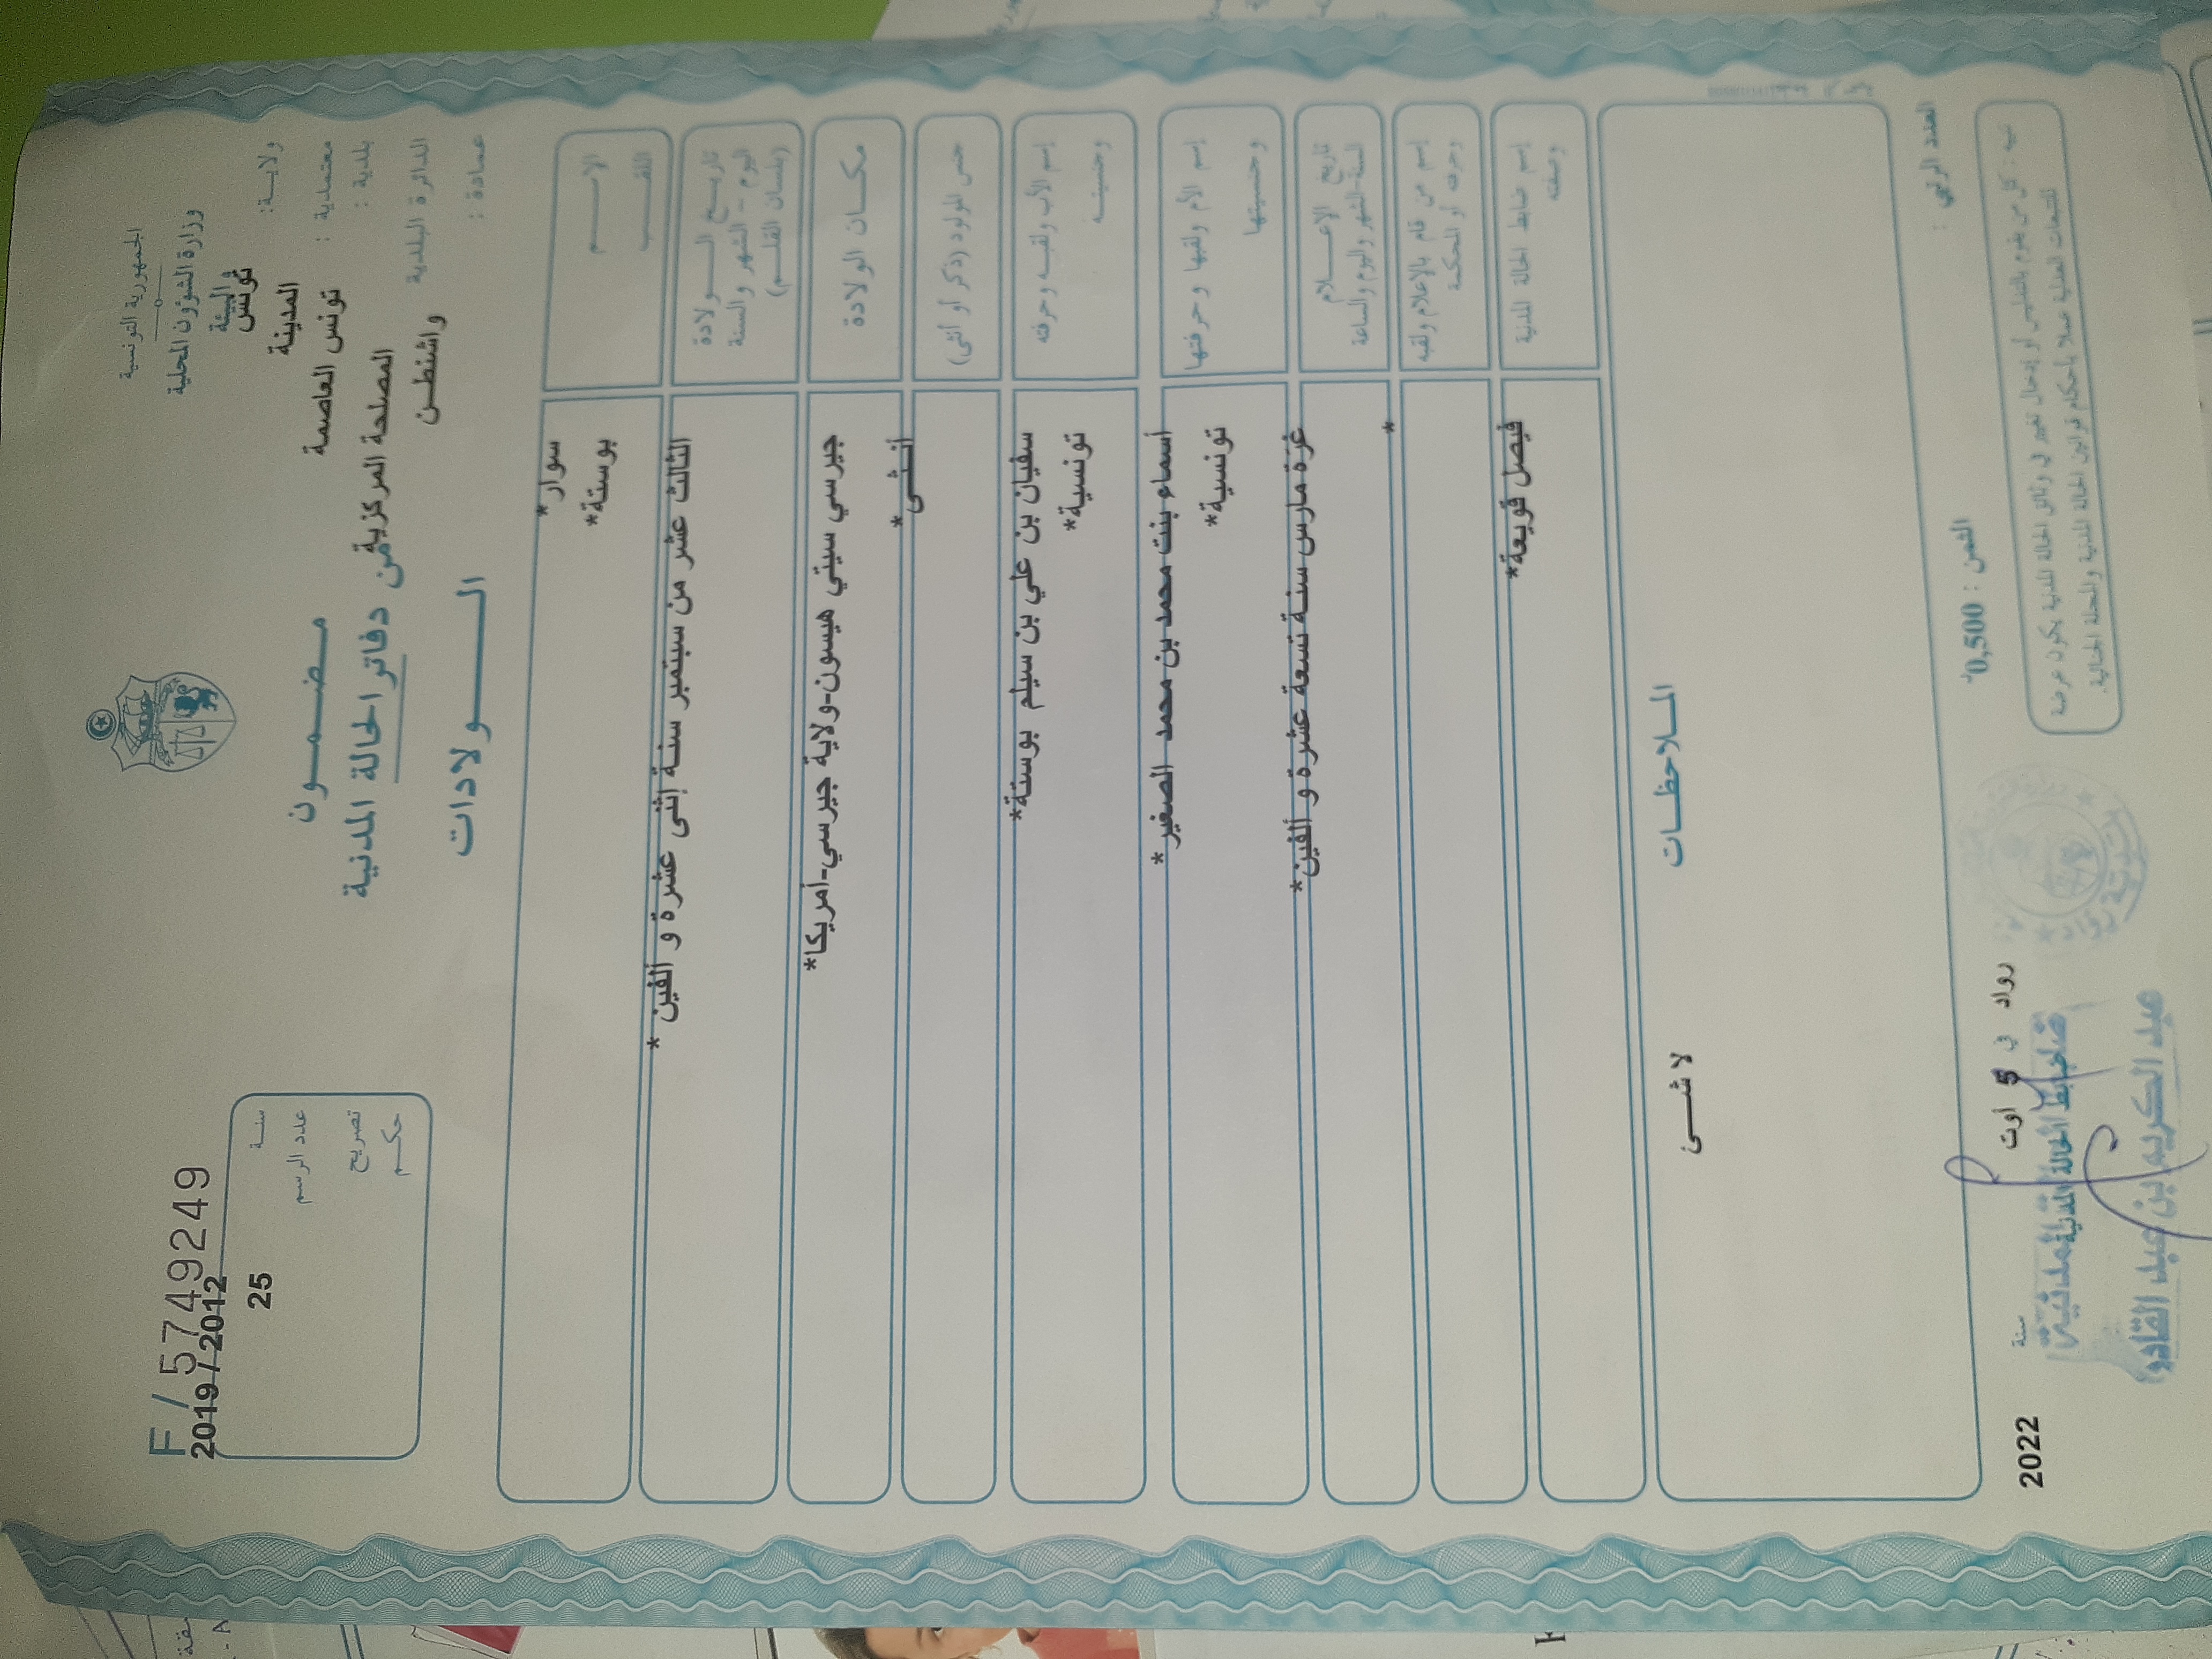 الجمهورية التونسية
وزارة الشؤون المحلية
والبيئة
ولاية: تونس
معتمدية : المدينة
بلدية : تونس العاصمة
الدائرة البلدية المصلحة المركزية
عمادة : واشنطن
F / 57492​49
سنة 2019 / 2012
عدد الرسم 25
تصريح
حكم
مضمون
من دفاتر الحالة المدنية
الولادات
الاسم سوار*
اللقب بوستة*
تاريخ الولادة الثالث عشر من سبتمبر سنة إثنى عشرة و ألفين *
اليوم - الشهر والسنة
(بلسان القلم)
مكان الولادة جيرسي سيتي هيسون-ولاية جيرسي-أمريكا*
جنس المولود (ذكر أو أنثى) أنثى*
إسم الأب ولقبه وحرفته سفيان بن علي بن سيلم بوستة*
وجنسيته تونسية*
إسم الأم ولقبها وحرفتها أسماء بنت محمد بن محمد الصغير *
وجنسيتها تونسية*
تاريخ الإعلام غرة مارس سنة تسعة عشرة و ألفين*
السنة-الشهر واليوم والساعة
إسم من قام بالإعلام ولقبه *
وحرفته أو المحكمة
إسم ضابط الحالة المدنية فيصل قويعة*
وصفته
الملاحظات
لا شىء
العدد الرتبي :
الثمن : 0,500
رواد في 5 أوت سنة 2022
ضابط الحالة المدنية
عبد الكريم بن عبد القادر
تنبيه : كل من يقوم بالتدليس أو إدخال تغيير في وثائق الحالة المدنية يكون عرضة
للتتبعات العدلية عملا بأحكام قوانين الحالة المدنية والمجلة الجنائية.